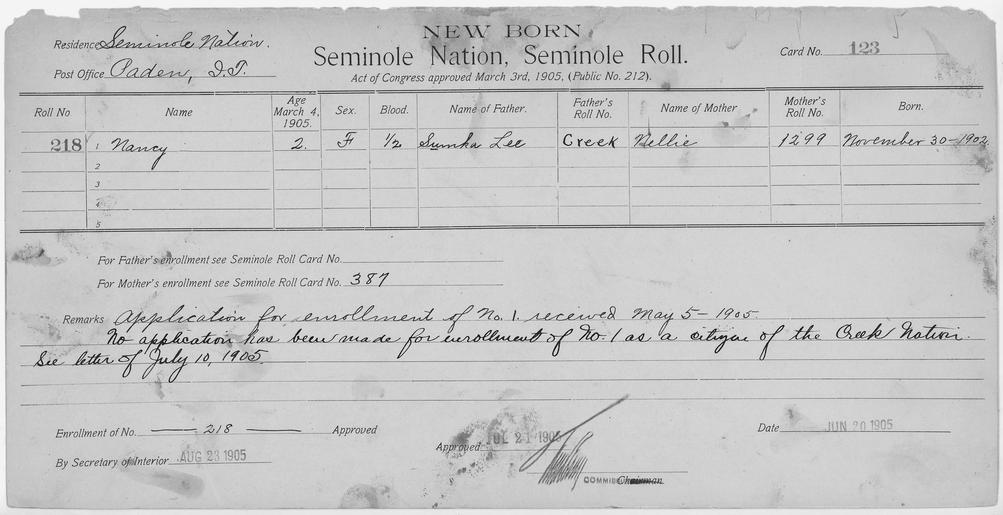 NEW BORN
Residence Seminole Nation.
Seminole Nation, Seminole Roll.
Card No. 123
Post Office Paden, I.T.
Act of Congress approved March 3rd, 1905, (Public No. 212).
Roll No Name Age March 4, 1905. Sex. Blood. Name of Father. Father's Roll No. Name of Mother Mother's Roll No. Born.
218 1 Nancy 2. F 1/2 Sumka Lee Creek Nellie 1299 November 30-1902
2
3
4
5
For Father's enrollment see Seminole Roll Card No.
For Mother's enrollment see Seminole Roll Card No. 387
Remarks Application for enrollment of No. 1. received May 5-1905.
No application has been made for enrollment of No. 1 as a citizen of the Creek Nation.
See letter of July 10, 1905.
Enrollment of No. 218 Approved
By Secretary of Interior AUG 23 1905
Approved JUL 21 1905
Date JUN 20 1905
Chairman.